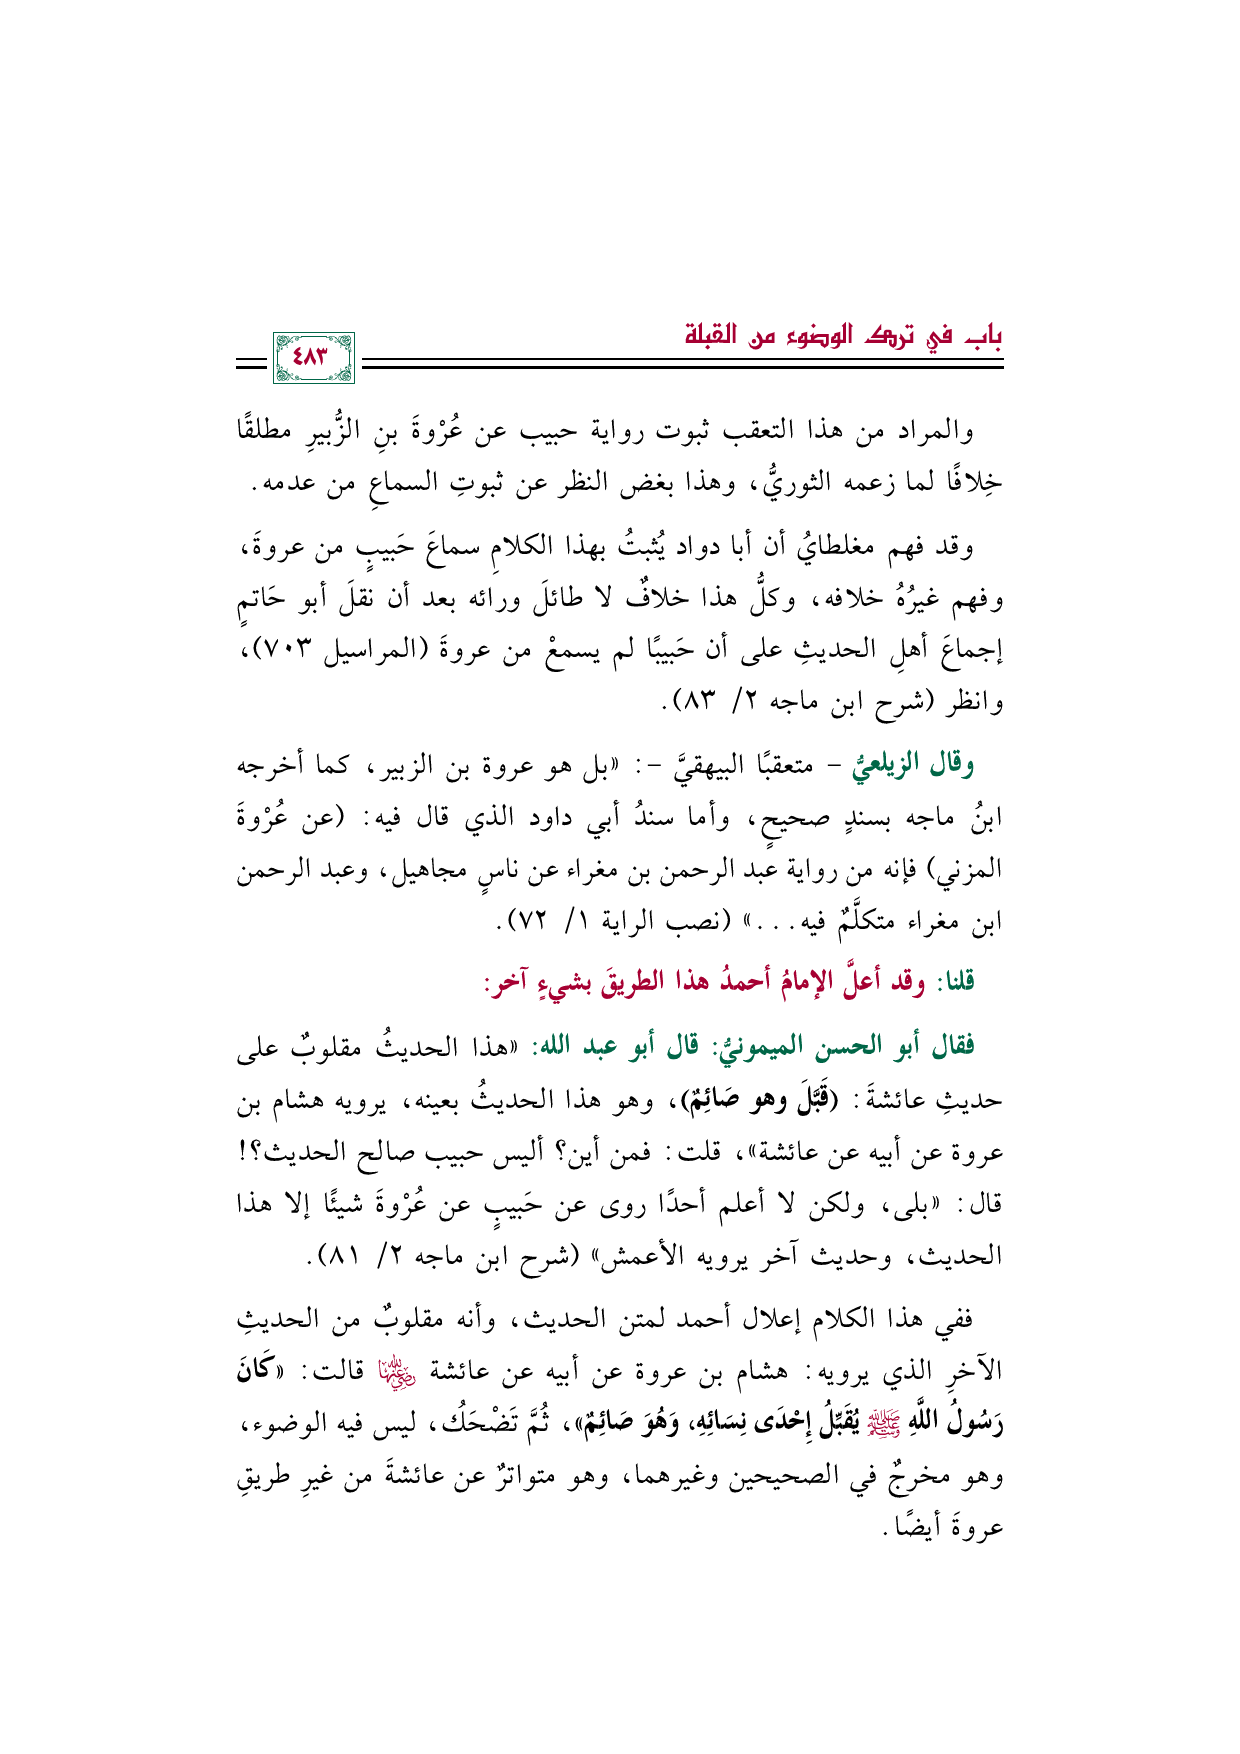 باب في ترك الوضوء من القبلة
٤٨٣
والمراد من هذا التعقب ثبوت رواية حبيب عن عُرْوةَ بنِ الزُّبيرِ مطلقًا
خِلافًا لما زعمه الثوريُّ، وهذا بغض النظر عن ثبوتِ السماعِ من عدمه.
وقد فهم مغلطايُ أن أبا دواد يُثبتُ بهذا الكلامِ سماعَ حَبيبٍ من عروةَ،
وفهم غيرُهُ خلافه، وكلُّ هذا خلافٌ لا طائلَ ورائه بعد أن نقلَ أبو حَاتمٍ
إجماعَ أهلِ الحديثِ على أن حَبيبًا لم يسمعْ من عروةَ (المراسيل ٧٠٣)،
وانظر (شرح ابن ماجه ٢/ ٨٣).
وقال الزيلعيُّ - متعقبًا البيهقيَّ -: «بل هو عروة بن الزبير، كما أخرجه
ابنُ ماجه بسندٍ صحيحٍ، وأما سندُ أبي داود الذي قال فيه: (عن عُرْوةَ
المزني) فإنه من رواية عبد الرحمن بن مغراء عن ناسٍ مجاهيل، وعبد الرحمن
ابن مغراء متكلَّمٌ فيه...» (نصب الراية ١/ ٧٢).
قلنا: وقد أعلَّ الإمامُ أحمدُ هذا الطريقَ بشيءٍ آخر:
فقال أبو الحسن الميمونيُّ: قال أبو عبد الله: «هذا الحديثُ مقلوبٌ على
حديثِ عائشةَ: (قَبَّلَ وهو صَائِمٌ)، وهو هذا الحديثُ بعينه، يرويه هشام بن
عروة عن أبيه عن عائشة»، قلت: فمن أين؟ أليس حبيب صالح الحديث؟!
قال: «بلى، ولكن لا أعلم أحدًا روى عن حَبيبٍ عن عُرْوةَ شيئًا إلا هذا
الحديث، وحديث آخر يرويه الأعمش» (شرح ابن ماجه ٢/ ٨١).
ففي هذا الكلام إعلال أحمد لمتن الحديث، وأنه مقلوبٌ من الحديثِ
الآخرِ الذي يرويه: هشام بن عروة عن أبيه عن عائشة رضي الله عنها قالت: «كَانَ
رَسُولُ اللَّهِ ﷺ يُقَبِّلُ إِحْدَى نِسَائِهِ، وَهُوَ صَائِمٌ»، ثُمَّ تَضْحَكُ، ليس فيه الوضوء،
وهو مخرجٌ في الصحيحين وغيرهما، وهو متواترٌ عن عائشةَ من غيرِ طريقِ
عروةَ أيضًا.